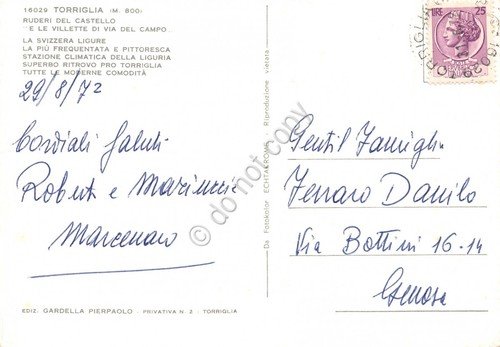 16029 TORRIGLIA (M. 800)
RUDERI DEL CASTELLO
E LE VILLETTE DI VIA DEL CAMPO
LA SVIZZERA LIGURE
LA PIÙ FREQUENTATA E PITTORESCA
STAZIONE CLIMATICA DELLA LIGURIA
SUPERBO RITROVO PRO TORRIGLIA
TUTTE LE MODERNE COMODITÀ
29/8/72
Cordiali Saluti
Roberto e Mariuccia
Marcenaro
EDIZ. GARDELLA PIERPAOLO - PRIVATIVA N. 2 - TORRIGLIA
Da Fotokolor Riproduzione vietata
LIRE 25
16029 TORRIGLIA
Gentil Famiglia
Ferraro Danilo
Via Bottini 16-14
Genova
do not copy